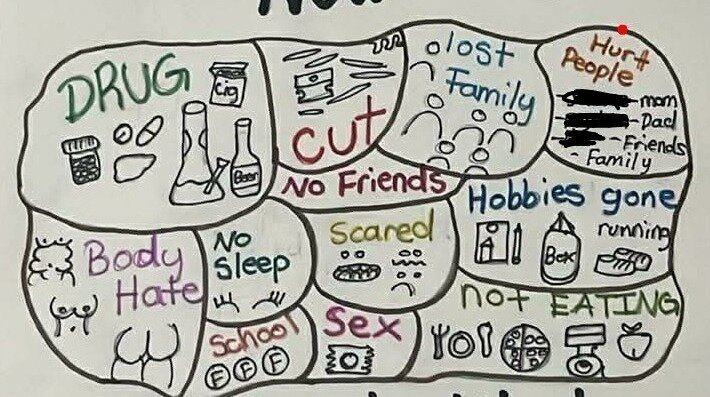 DRUG
Cig
Beer
CUT
lost
Family
Hurt
People
mom
Dad
Friends
Family
No Friends
Hobbies gone
Box
running
Body
Hate
No
Sleep
Scared
School
F F F
Sex
not EATING